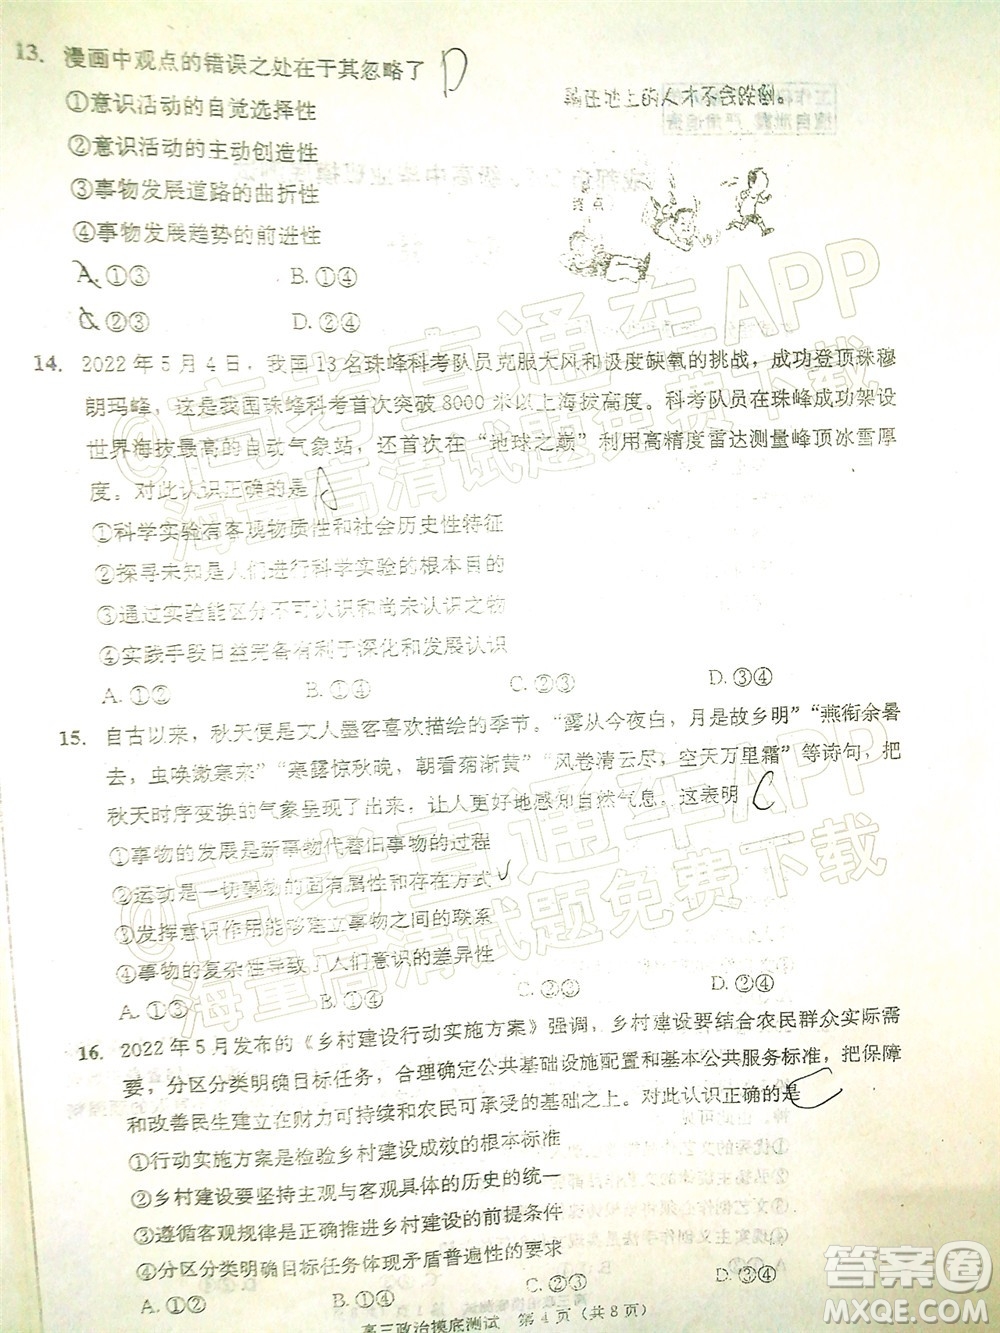 13. 漫画中观点的错误之处在于其忽略了 D
①意识活动的自觉选择性
②意识活动的主动创造性
③事物发展道路的曲折性
④事物发展趋势的前进性
A. ①③ B. ①④
C. ②③ D. ②④
躺在地上的人才不会跌倒。
终点
14. 2022年5月4日，我国13名珠峰科考队员克服大风和极度缺氧的挑战，成功登顶珠穆
朗玛峰，这是我国珠峰科考首次突破8000米以上海拔高度。科考队员在珠峰成功架设
世界海拔最高的自动气象站，还首次在“地球之巅”利用高精度雷达测量峰顶冰雪厚
度。对此认识正确的是
①科学实验有客观物质性和社会历史性特征
②探寻未知是人们进行科学实验的根本目的
③通过实验能区分不可认识和尚未认识之物
④实践手段日益完备有利于深化和扩展认识
A. ①② B. ①④ C. ②③ D. ③④
15. 自古以来，秋天便是文人墨客喜欢描绘的季节。“露从今夜白，月是故乡明”“燕衔余暑
去，虫唤嫩寒来”“寒露惊秋晚，朝看菊渐黄”“风卷清云尽，空天万里霜”等诗句，把
秋天时序变换的气象呈现了出来，让人更好地感知自然气息。这表明 C
①事物的发展是新事物代替旧事物的过程
②运动是一切事物的固有属性和存在方式
③发挥意识作用能够建立事物之间的联系
④事物的复杂性导致了人们意识的差异性
A. ①③ B. ①④ C. ②③ D. ②④
16. 2022年5月发布的《乡村建设行动实施方案》强调，乡村建设要结合农民群众实际需
要，分区分类明确目标任务，合理确定公共基础设施配置和基本公共服务标准，把保障
和改善民生建立在财力可持续和农民可承受的基础之上。对此认识正确的是 C
①行动实施方案是检验乡村建设成效的根本标准
②乡村建设要坚持主观与客观具体的历史的统一
③遵循客观规律是正确推进乡村建设的前提条件
④分区分类明确目标任务体现矛盾普遍性的要求
A. ①② B. ①④ C. ②③ D. ③④
高三政治摸底测试 第4页（共8页）
@高考直通车APP
海量高清试题免费下载
@高考直通车APP
海量高清试题免费下载
答案圈
MXQE.COM